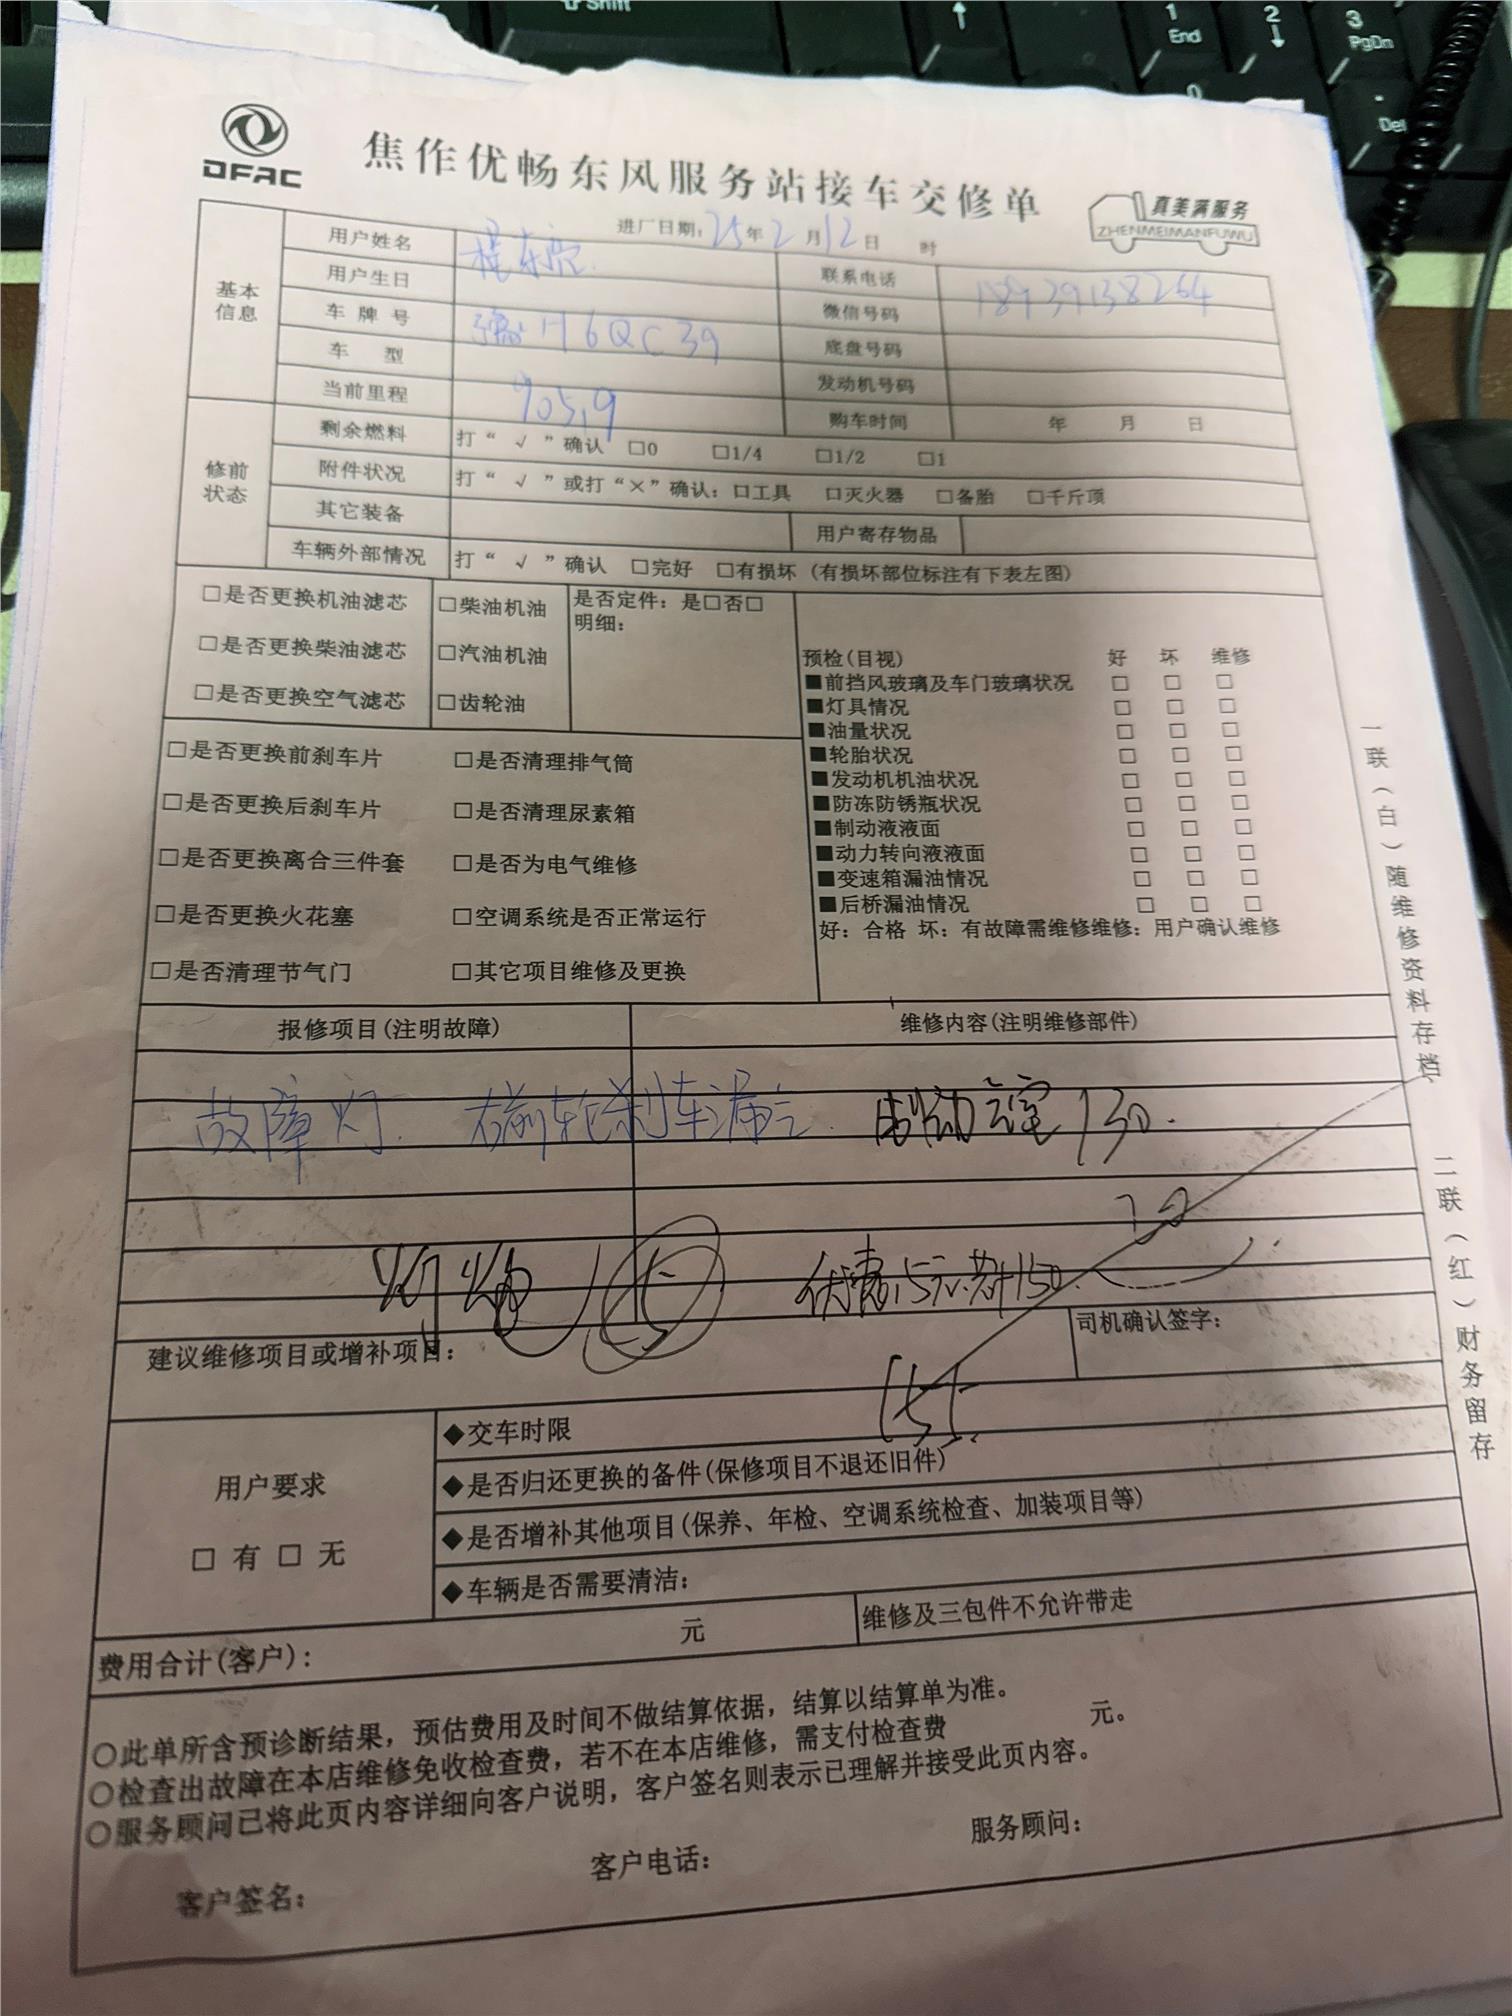 Shift
1 End
2
3 PgDn
0
Del
DFAC
焦作优畅东风服务站接车交修单
真美满服务
ZHENMEIMANFUWU
进厂日期：25年2月12日 时
基本信息
用户姓名 东亮 联系电话 18939138264
用户生日 微信号码
车牌号 豫H6QC39 底盘号码
车 型 发动机号码
当前里程 90519 购车时间 年 月 日
修前状态
剩余燃料 打“√”确认 □0 □1/4 □1/2 □1
附件状况 打“√”或打“×”确认：□工具 □灭火器 □备胎 □千斤顶
其它装备 用户寄存物品
车辆外部情况 打“√”确认 □完好 □有损坏（有损坏部位标注有下表左图）
□是否更换机油滤芯 □柴油机油 是否定件：是□否□
明细：
□是否更换柴油滤芯 □汽油机油
□是否更换空气滤芯 □齿轮油
□是否更换前刹车片 □是否清理排气筒
□是否更换后刹车片 □是否清理尿素箱
□是否更换离合三件套 □是否为电气维修
□是否更换火花塞 □空调系统是否正常运行
□是否清理节气门 □其它项目维修及更换
预检(目视) 好 坏 维修
■前挡风玻璃及车门玻璃状况 □ □ □
■灯具情况 □ □ □
■油量状况 □ □ □
■轮胎状况 □ □ □
■发动机机油状况 □ □ □
■防冻防锈瓶状况 □ □ □
■制动液液面 □ □ □
■动力转向液液面 □ □ □
■变速箱漏油情况 □ □ □
■后桥漏油情况 □ □ □
好：合格 坏：有故障需维修维修：用户确认维修
报修项目(注明故障) 维修内容(注明维修部件)
故障灯. 右前轮刹车漏气. 制动气室130.
灯泡 15
155.
建议维修项目或增补项目： 司机确认签字：
用户要求
□ 有 □ 无
◆交车时限
◆是否归还更换的备件(保修项目不退还旧件)
◆是否增补其他项目(保养、年检、空调系统检查、加装项目等)
◆车辆是否需要清洁：
费用合计(客户)： 元 维修及三包件不允许带走
○此单所含预诊断结果，预估费用及时间不做结算依据，结算以结算单为准。
○检查出故障在本店维修免收检查费，若不在本店维修，需支付检查费 元。
○服务顾问已将此页内容详细向客户说明，客户签名则表示已理解并接受此页内容。
客户签名： 客户电话： 服务顾问：
一联（白）随维修资料存档 二联（红）财务留存